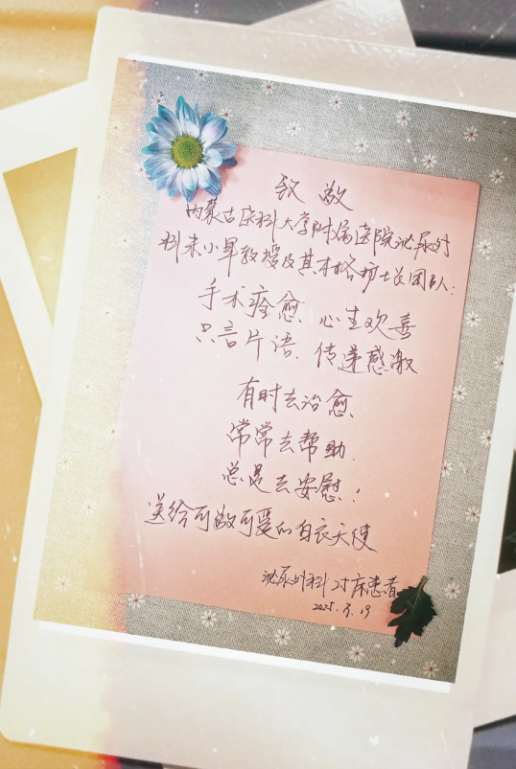 致敬
内蒙古医科大学附属医院泌尿外
科宋小军教授及其本格护士长团队:
手术痊愈、心生欢喜
只言片语、传递感激
有时去治愈、
常常去帮助、
总是去安慰!
送给可敬可爱的白衣天使
泌尿外科 床患者
2025.3.19